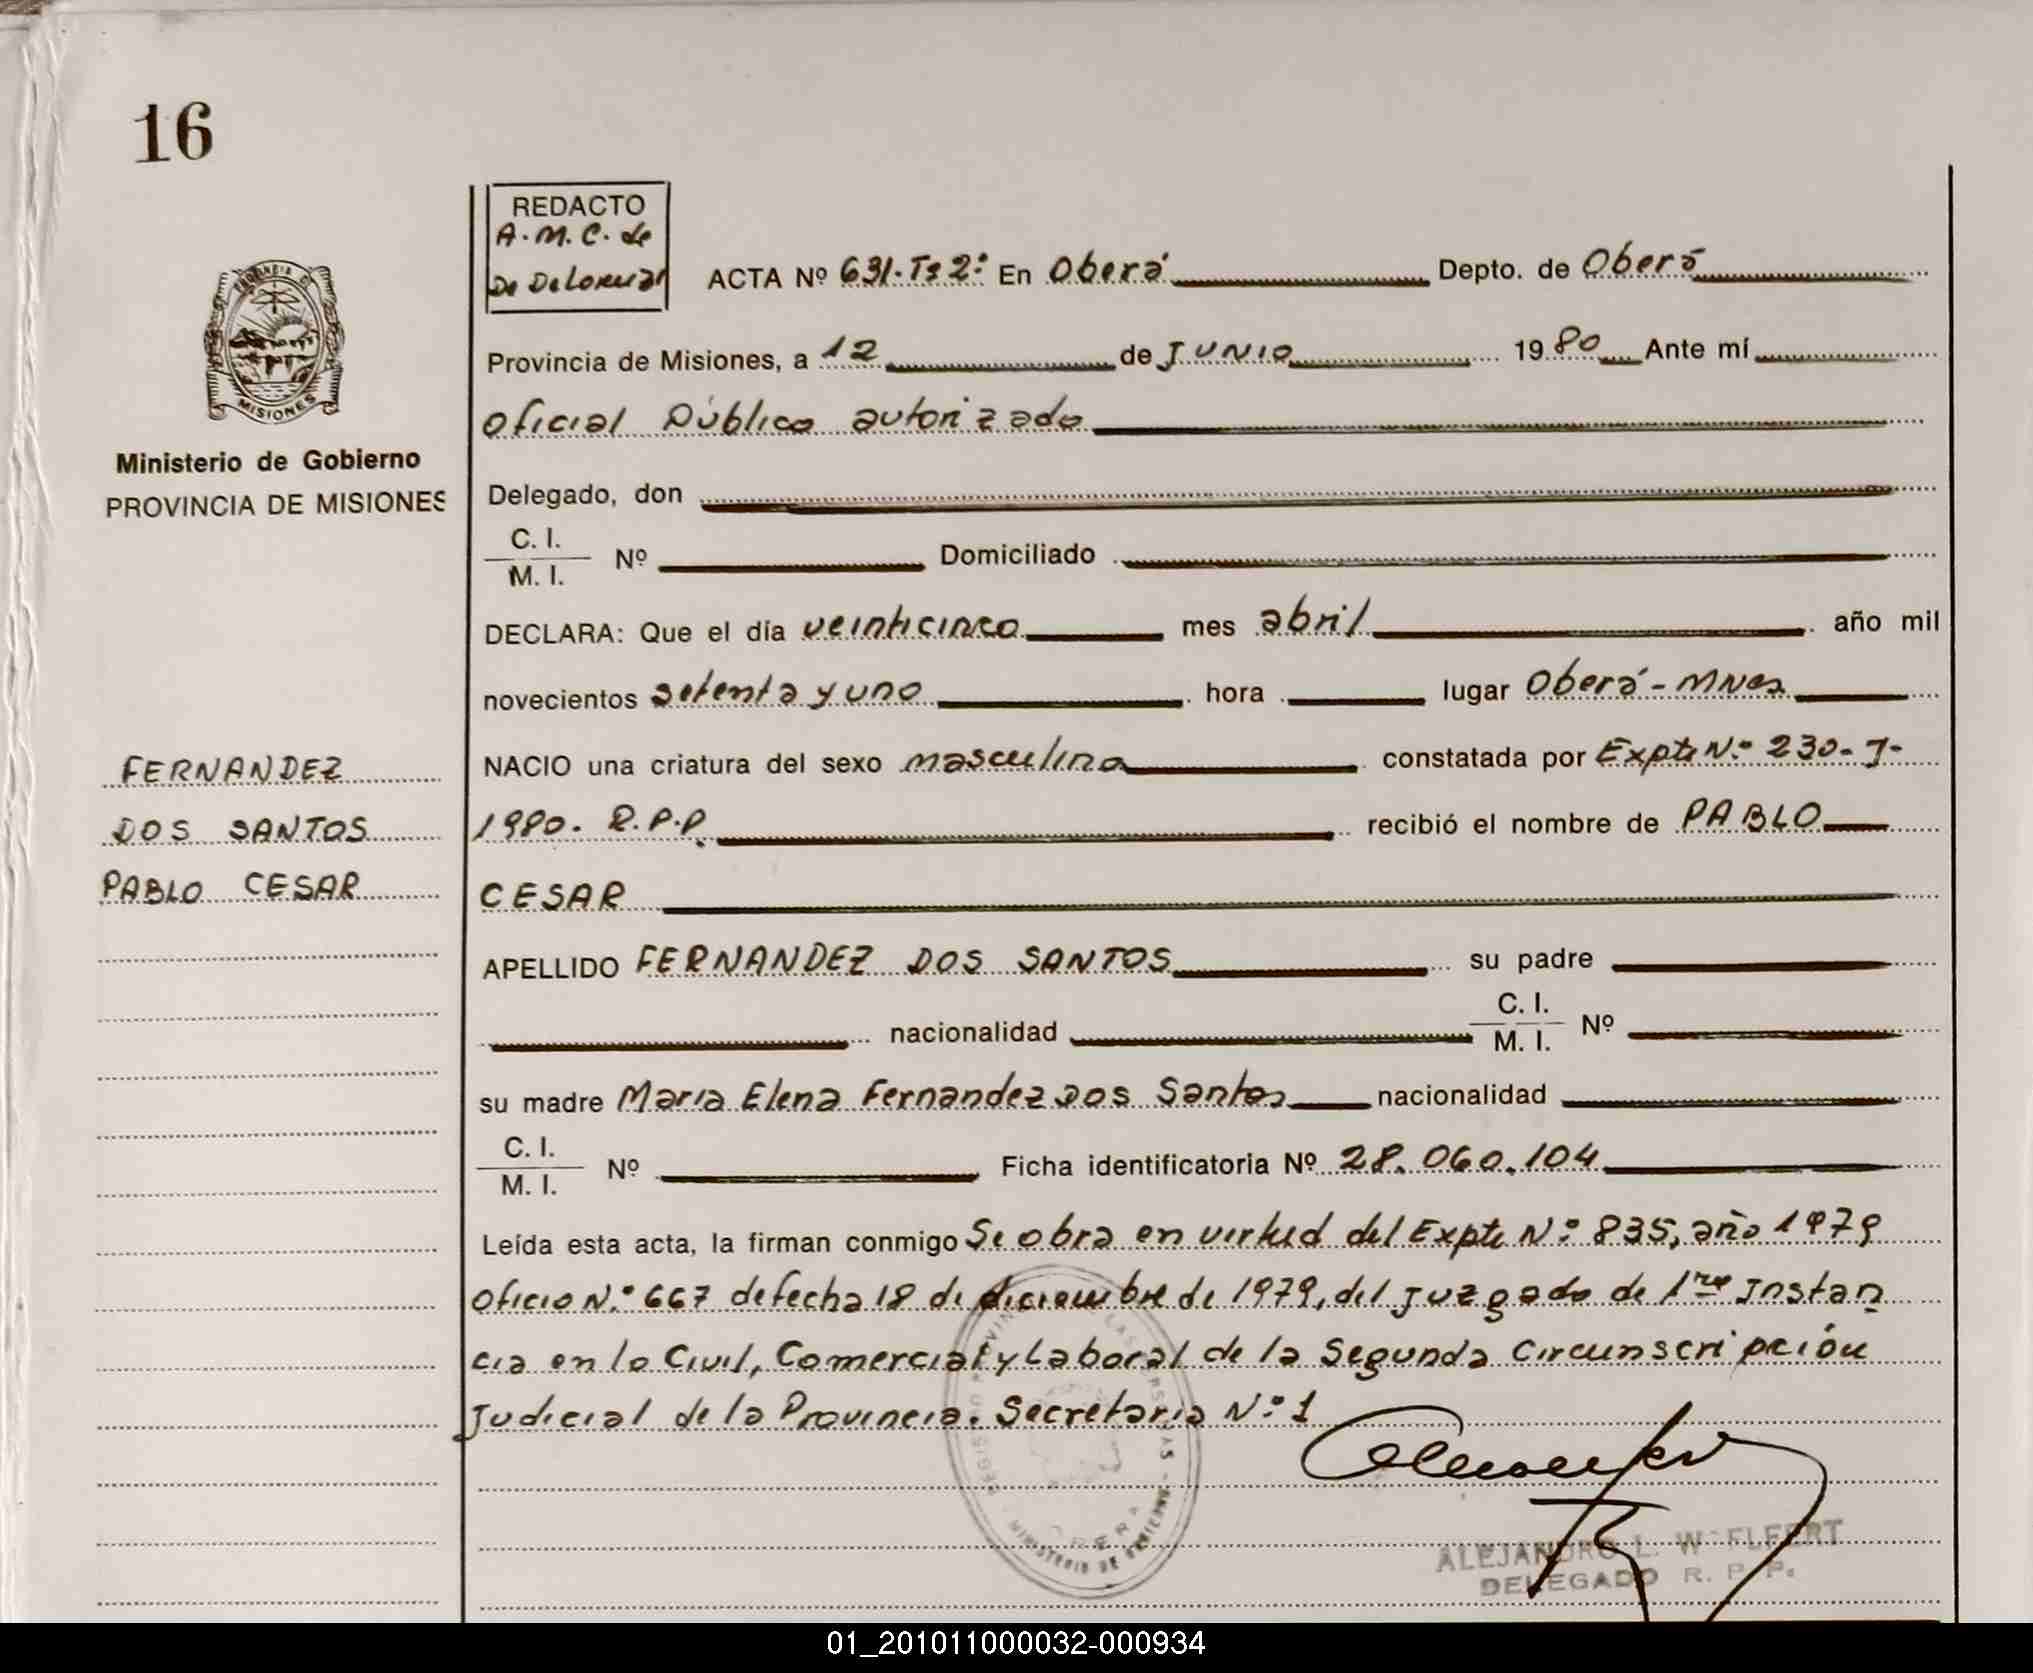 16
REDACTO
A.M.C. de
ACTA Nº 631. Tº 2º En Oberá Depto. de Oberá
Provincia de Misiones, a 12 de JUNIO 1980 Ante mí
Oficial Público autorizado
Delegado, don
C. I.
M. I. Nº Domiciliado
DECLARA: Que el día veinticinco mes abril año mil
novecientos setenta y uno hora lugar Oberá - MNes
NACIO una criatura del sexo masculino constatada por Expte Nº 230-J-
1980. R.P.P. recibió el nombre de PABLO
CESAR
APELLIDO FERNANDEZ DOS SANTOS su padre
nacionalidad C. I.
M. I. Nº
su madre Maria Elena Fernandez DOS Santos nacionalidad
C. I.
M. I. Nº Ficha identificatoria Nº 28.060.104
Leída esta acta, la firman conmigo Se obra en virtud del Expte Nº 835, año 1979
Oficio Nº 667 de fecha 18 de diciembre de 1979, del Juzgado de 1ra Instan
cia en lo Civil, Comercial y Laboral de la Segunda Circunscripción
Judicial de la Provincia. Secretaria Nº 1
ALEJANDRO L.
DELEGADO R. P. P.
MINISTERIO DE GOBIERNO
OBERA
MISIONES
Ministerio de Gobierno
PROVINCIA DE MISIONES
FERNANDEZ
DOS SANTOS
PABLO CESAR
01_201011000032-000934